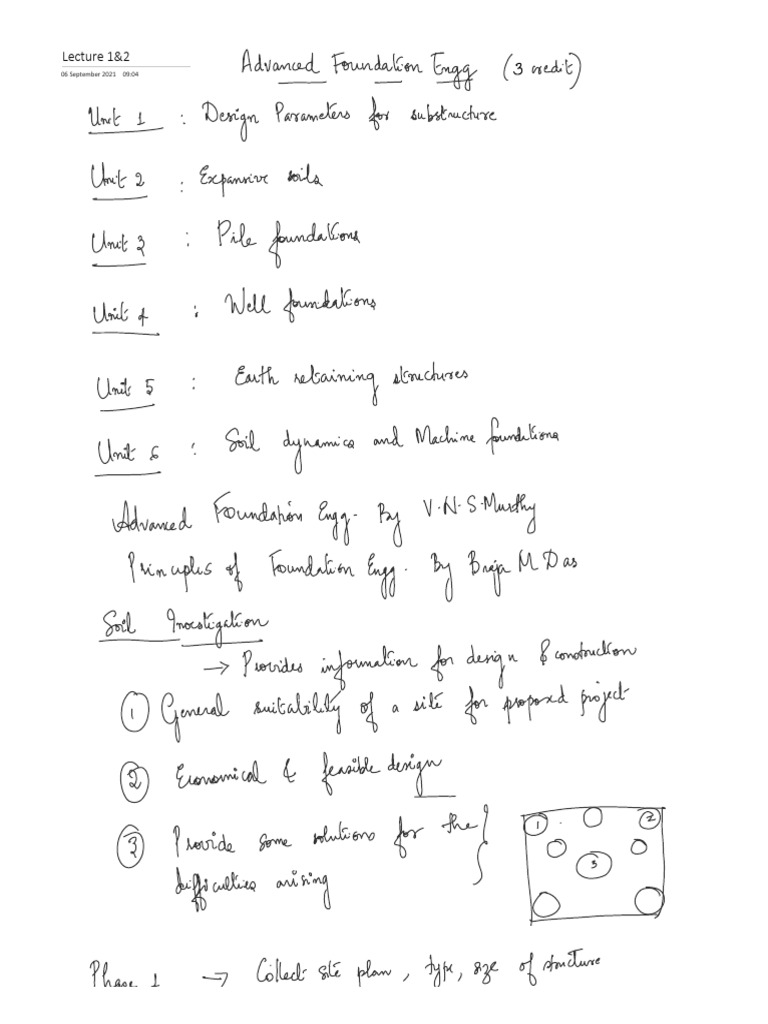 Lecture 1&2
06 September 2021 09:04
Advanced Foundation Engg (3 credit)
Unit 1 : Design Parameters for substructure
Unit 2 : Expansive soils
Unit 3 : Pile foundations
Unit 4 : Well foundations
Unit 5 : Earth retaining structures
Unit 6 : Soil dynamics and Machine foundations
Advanced Foundation Engg. By V.N.S.Murthy
Principles of Foundation Engg. By Braja M Das
Soil Investigation
→ Provides information for design & construction
① General suitability of a site for proposed project
② Economical & feasible design
③ Provide some solutions for the
difficulties arising
1 2
3
Phase 1 → Collect site plan, type, size of structure